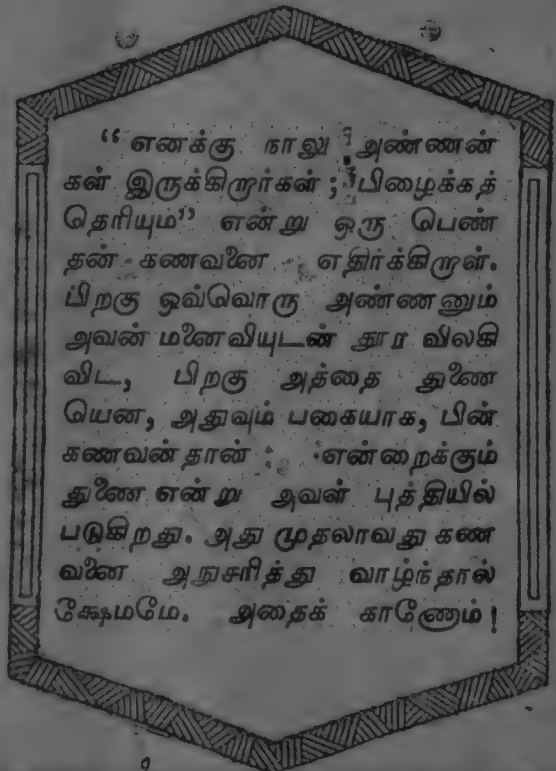 “எனக்கு நாலு அண்ணன்
கள் இருக்கிறார்கள் ; பிழைக்கத்
தெரியும்” என்று ஒரு பெண்
தன் கணவனை எதிர்க்கிறாள்.
பிறகு ஒவ்வொரு அண்ணனும்
அவன் மனைவியுடன் தூர விலகி
விட, பிறகு அத்தை துணை
யென, அதுவும் பகையாக, பின்
கணவன் தான் என்றைக்கும்
துணை என்று அவள் புத்தியில்
படுகிறது. அது முதலாவது கண
வனை அநுசரித்து வாழ்ந்தால்
க்ஷேமமே. அதைக் காணோம் !